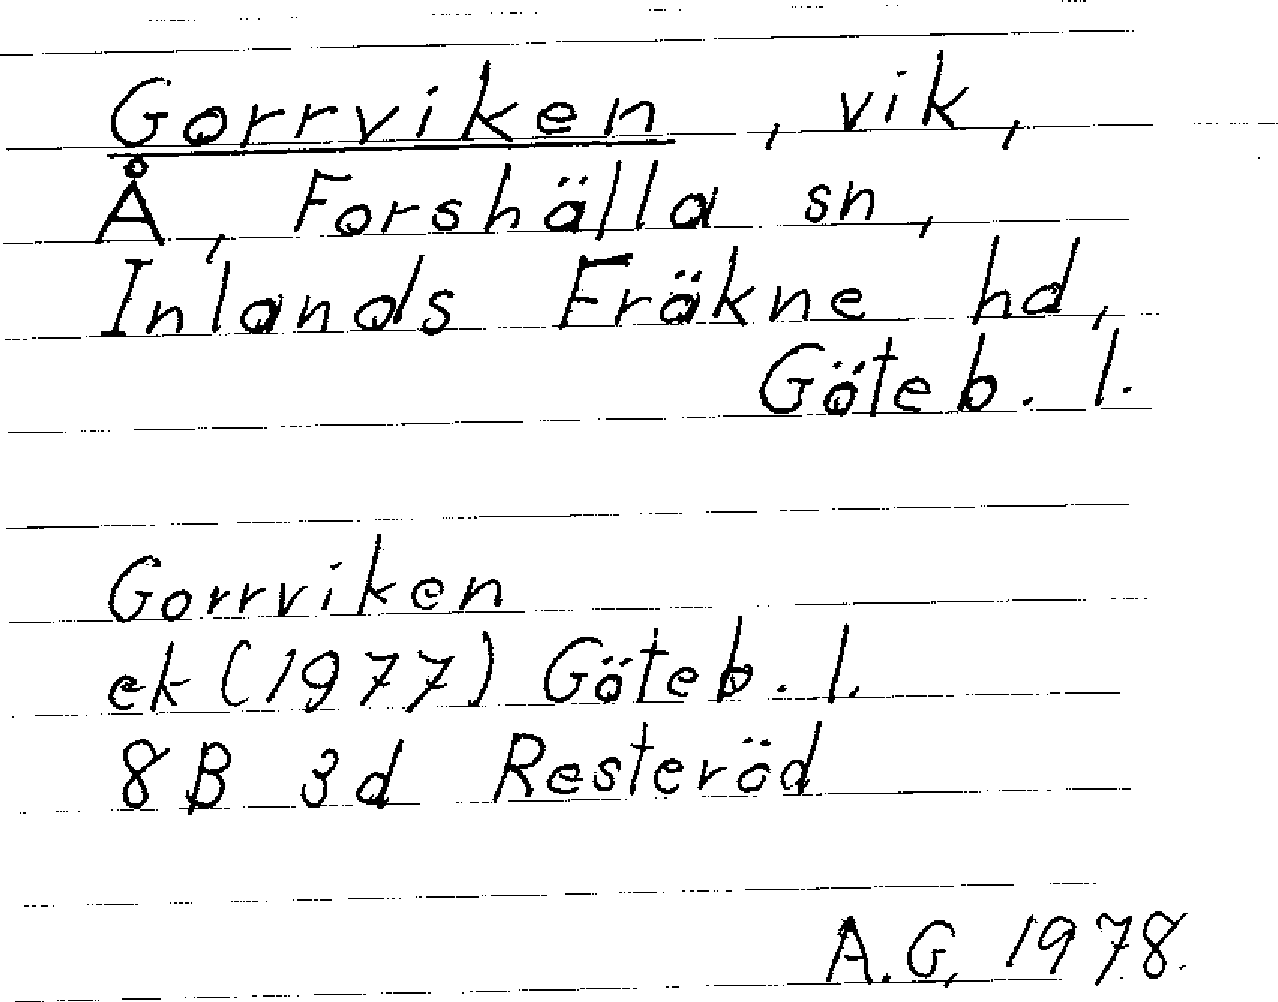 Gorrviken, vik,
Å, Forshälla sn,
Inlands Fräkne hd,
Göteb. l.
Gorrviken
ek (1977) Göteb. l.
8B 3d Resteröd
A.G. 1978.